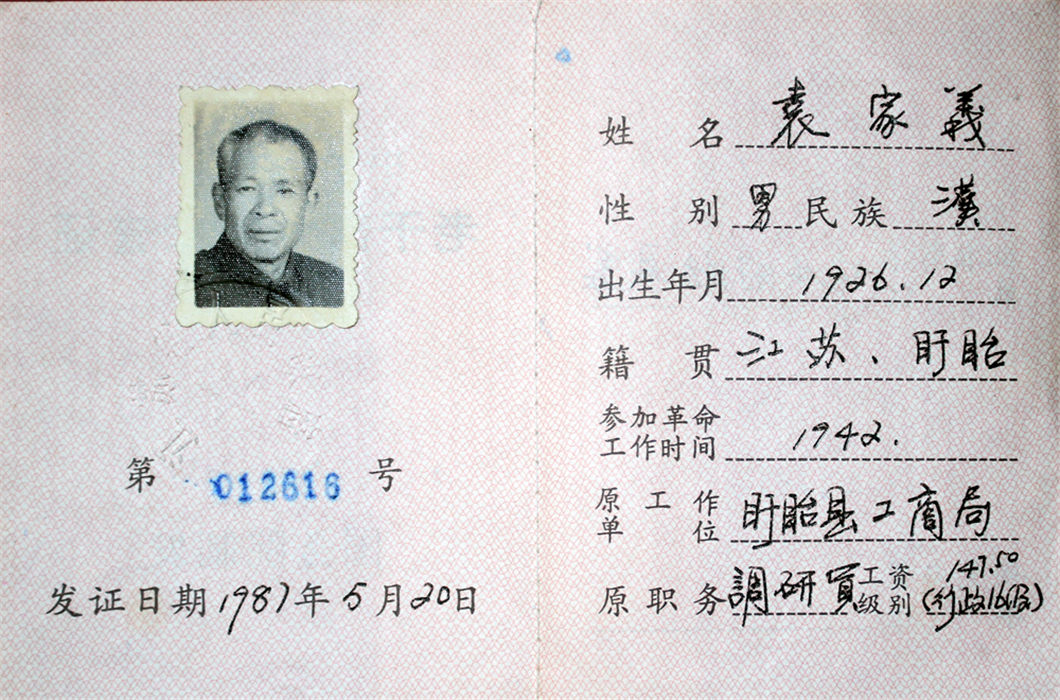 第 012616 号
发证日期 1987年 5月 20日
姓名 袁家義
性别 男 民族 漢
出生年月 1926.12
籍贯 江苏、盱眙
参加革命
工作时间 1942.
原工作
单位 盱眙县工商局
原职务 調研員 工资
级别 147.50
(行政16级)